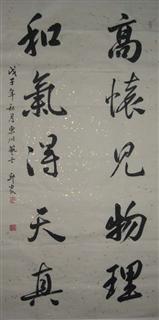 高懷見物理
和氣得天真
戊子年秋月